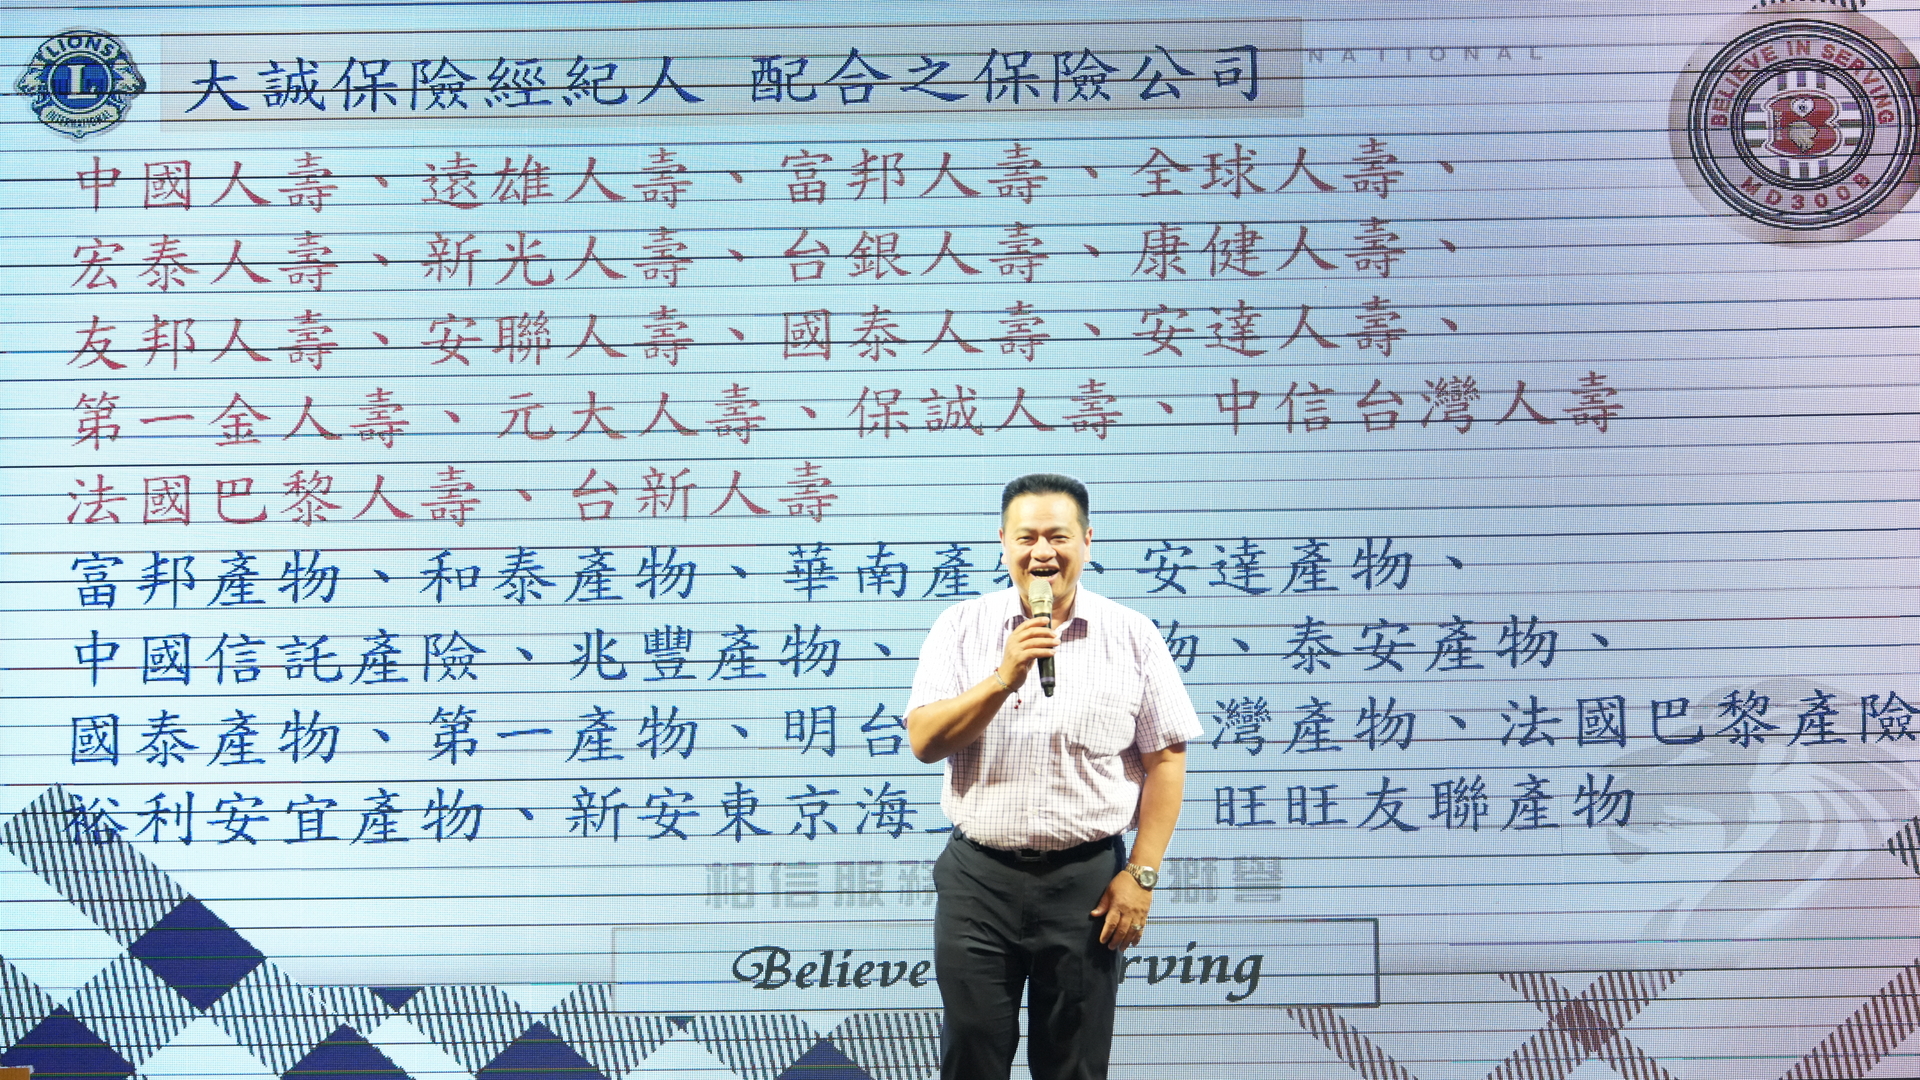 LIONS
L
INTERNATIONAL
大誠保險經紀人 配合之保險公司
NATIONAL
BELIEVE IN SERVING
B
MD300B
中國人壽、遠雄人壽、富邦人壽、全球人壽、
宏泰人壽、新光人壽、台銀人壽、康健人壽、
友邦人壽、安聯人壽、國泰人壽、安達人壽、
第一金人壽、元大人壽、保誠人壽、中信台灣人壽
法國巴黎人壽、台新人壽
富邦產物、和泰產物、華南產 、安達產物、
中國信託產險、兆豐產物、 物、泰安產物、
國泰產物、第一產物、明台 灣產物、法國巴黎產險
裕利安宜產物、新安東京海 旺旺友聯產物
相信服務 獅譽
Believe rving